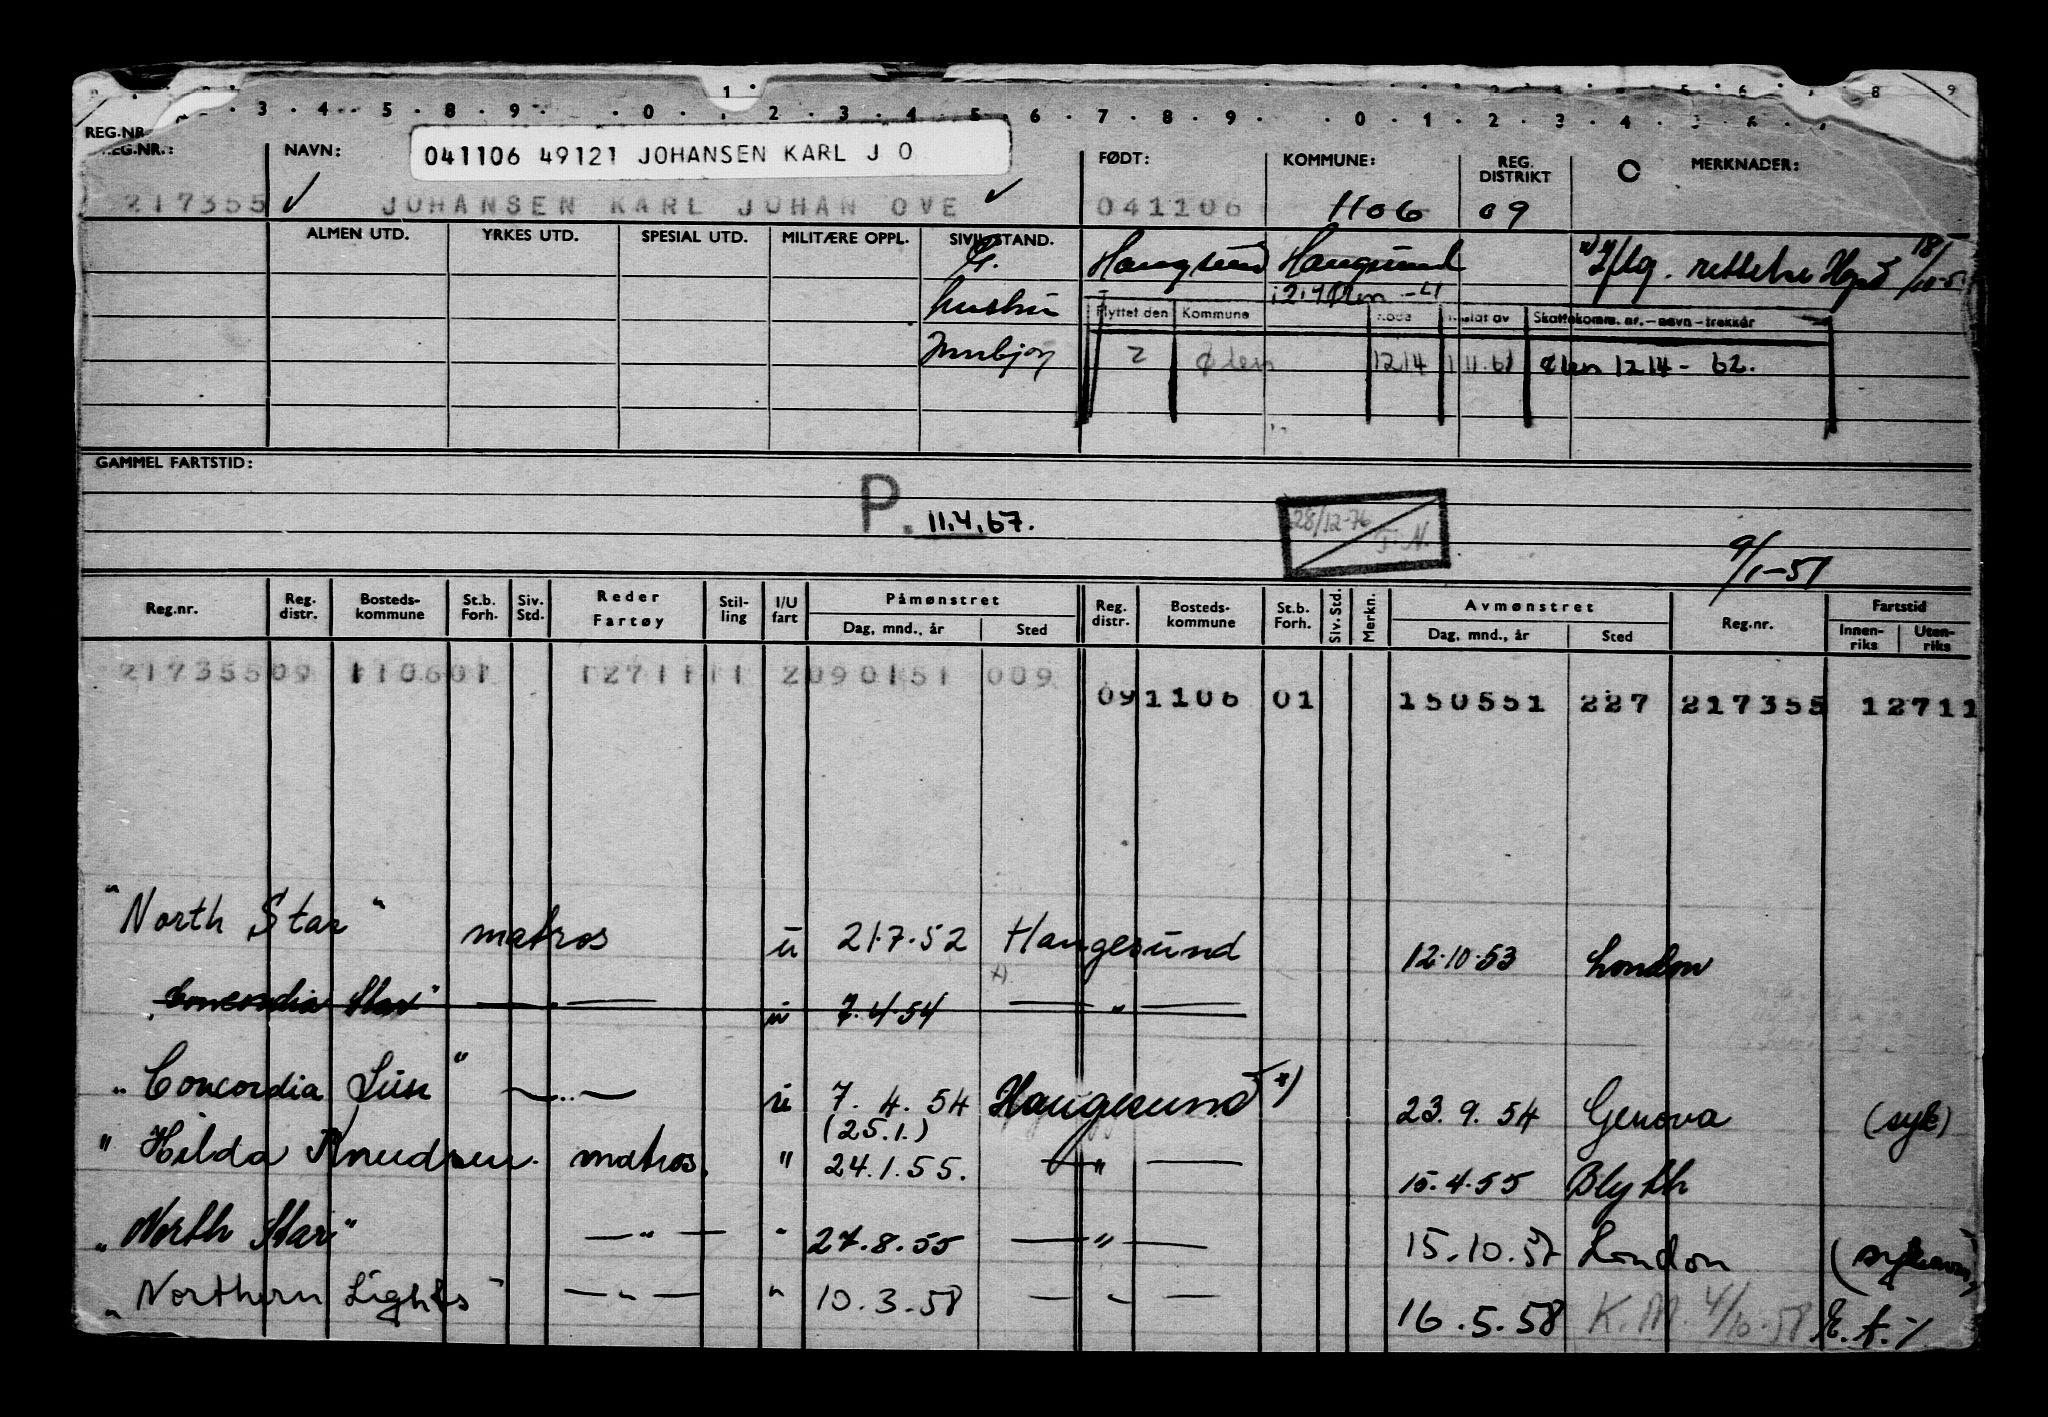 REG.NR.
REG.NR.:
NAVN:
041106 49121 JOHANSEN KARL J O
FØDT:
KOMMUNE:
REG. DISTRIKT
MERKNADER:
217355 JOHANSEN KARL JOHAN OVE 041106 1106 09
ALMEN UTD. YRKES UTD. SPESIAL UTD. MILITÆRE OPPL. SIVIL STAND.
G. Haugesund Haugesund
hustru
Flyttet den Kommune Kode Skattekomm. nr. – navn – trekkår
2 Ølen 1214 1.11.61 Ølen 1214 - 62.
GAMMEL FARTSTID:
P. 11.4.67.
28/12-76
9/1-51
Reg.nr. Reg. distr. Bosteds-kommune St.b. Forh. Siv. Std. Reder Fartøy Stil-ling I/U fart Påmønstret Dag, mnd., år Sted Reg. distr. Bosteds-kommune St.b. Forh. Siv. Std. Merkn. Avmønstret Dag, mnd., år Sted Reg.nr. Fartstid Innen-riks Uten-riks
217355 09 1106 01 127111 1 2 090151 009
09 1106 01 150551 227 217355 12711
"North Star" matros u 21.7.52 Haugesund 12.10.53 London
"Concordia Star" — — u 7.4.54 — " —
"Concordia Sun" — " — u 7.4.54 Haugesund x) 23.9.54 Genova (syk)
(25.1.)
"Hilda Knudsen. matros. " 24.1.55. — " — 15.4.55 Blyth
"North Star" — " — " 27.8.55 — " — 15.10.57 London
"Northern Lights" — " — " 10.3.58 — " — 16.5.58 K.M. 4/10-58